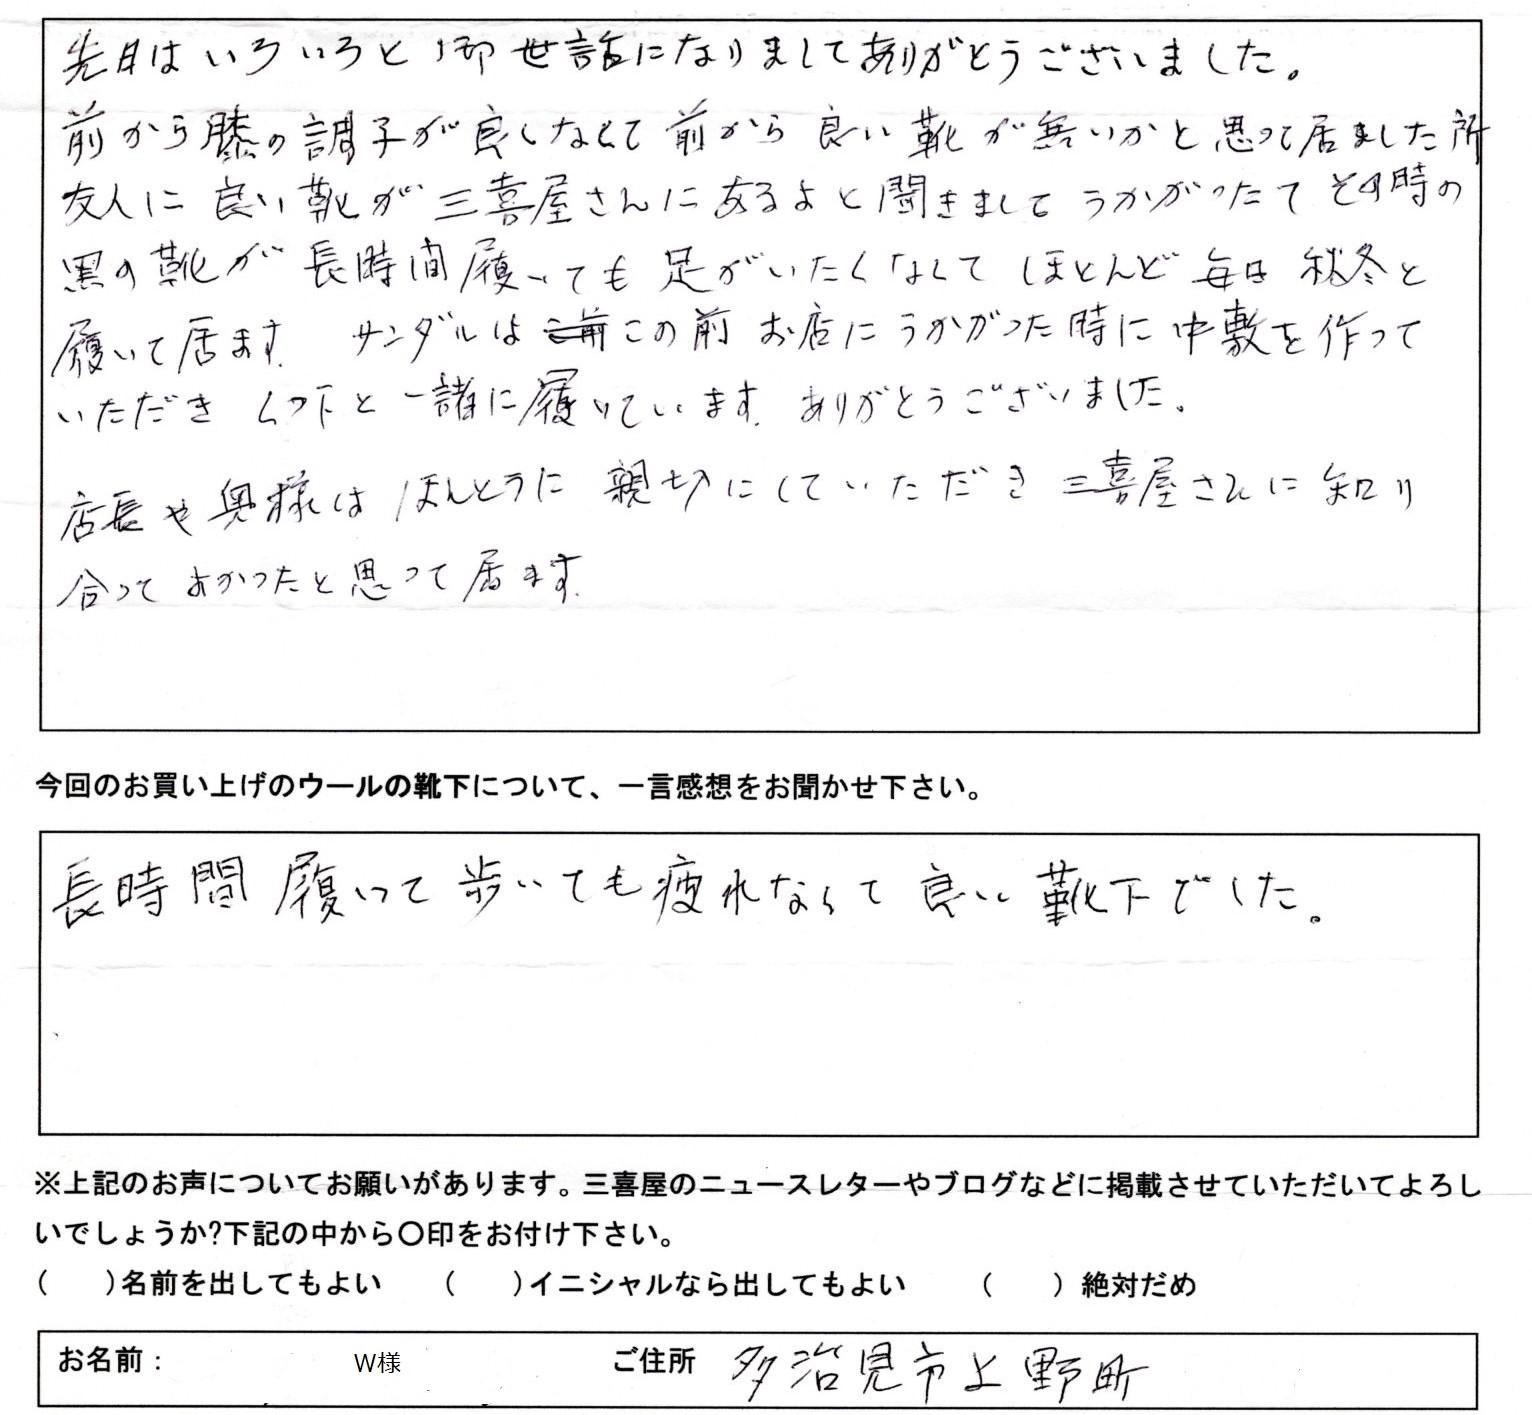 先日はいろいろと御世話になりましてありがとうございました。
前から膝の調子が良しなくて前から良い靴が無いかと思って居ました所
友人に良い靴が三喜屋さんにあるよと聞きましてうかがったてその時の
黒の靴が長時間履いても足がいたくなくてほとんど毎日秋冬と
履いて居ます。サンダルはこの前お店にうかがった時に中敷を作って
いただきくつ下と一諸に履いています。ありがとうございました。
店長や奥様はほんとうに親切にしていただき三喜屋さんに知り
合ってよかったと思って居ます。
今回のお買い上げのウールの靴下について、一言感想をお聞かせ下さい。
長時間履いて歩いても疲れなくて良い靴下でした。
※上記のお声についてお願いがあります。三喜屋のニュースレターやブログなどに掲載させていただいてよろし
いでしょうか?下記の中から〇印をお付け下さい。
(　　)名前を出してもよい　　(　　)イニシャルなら出してもよい　　(　　) 絶対だめ
お名前：　W様　ご住所　多治見市上野町